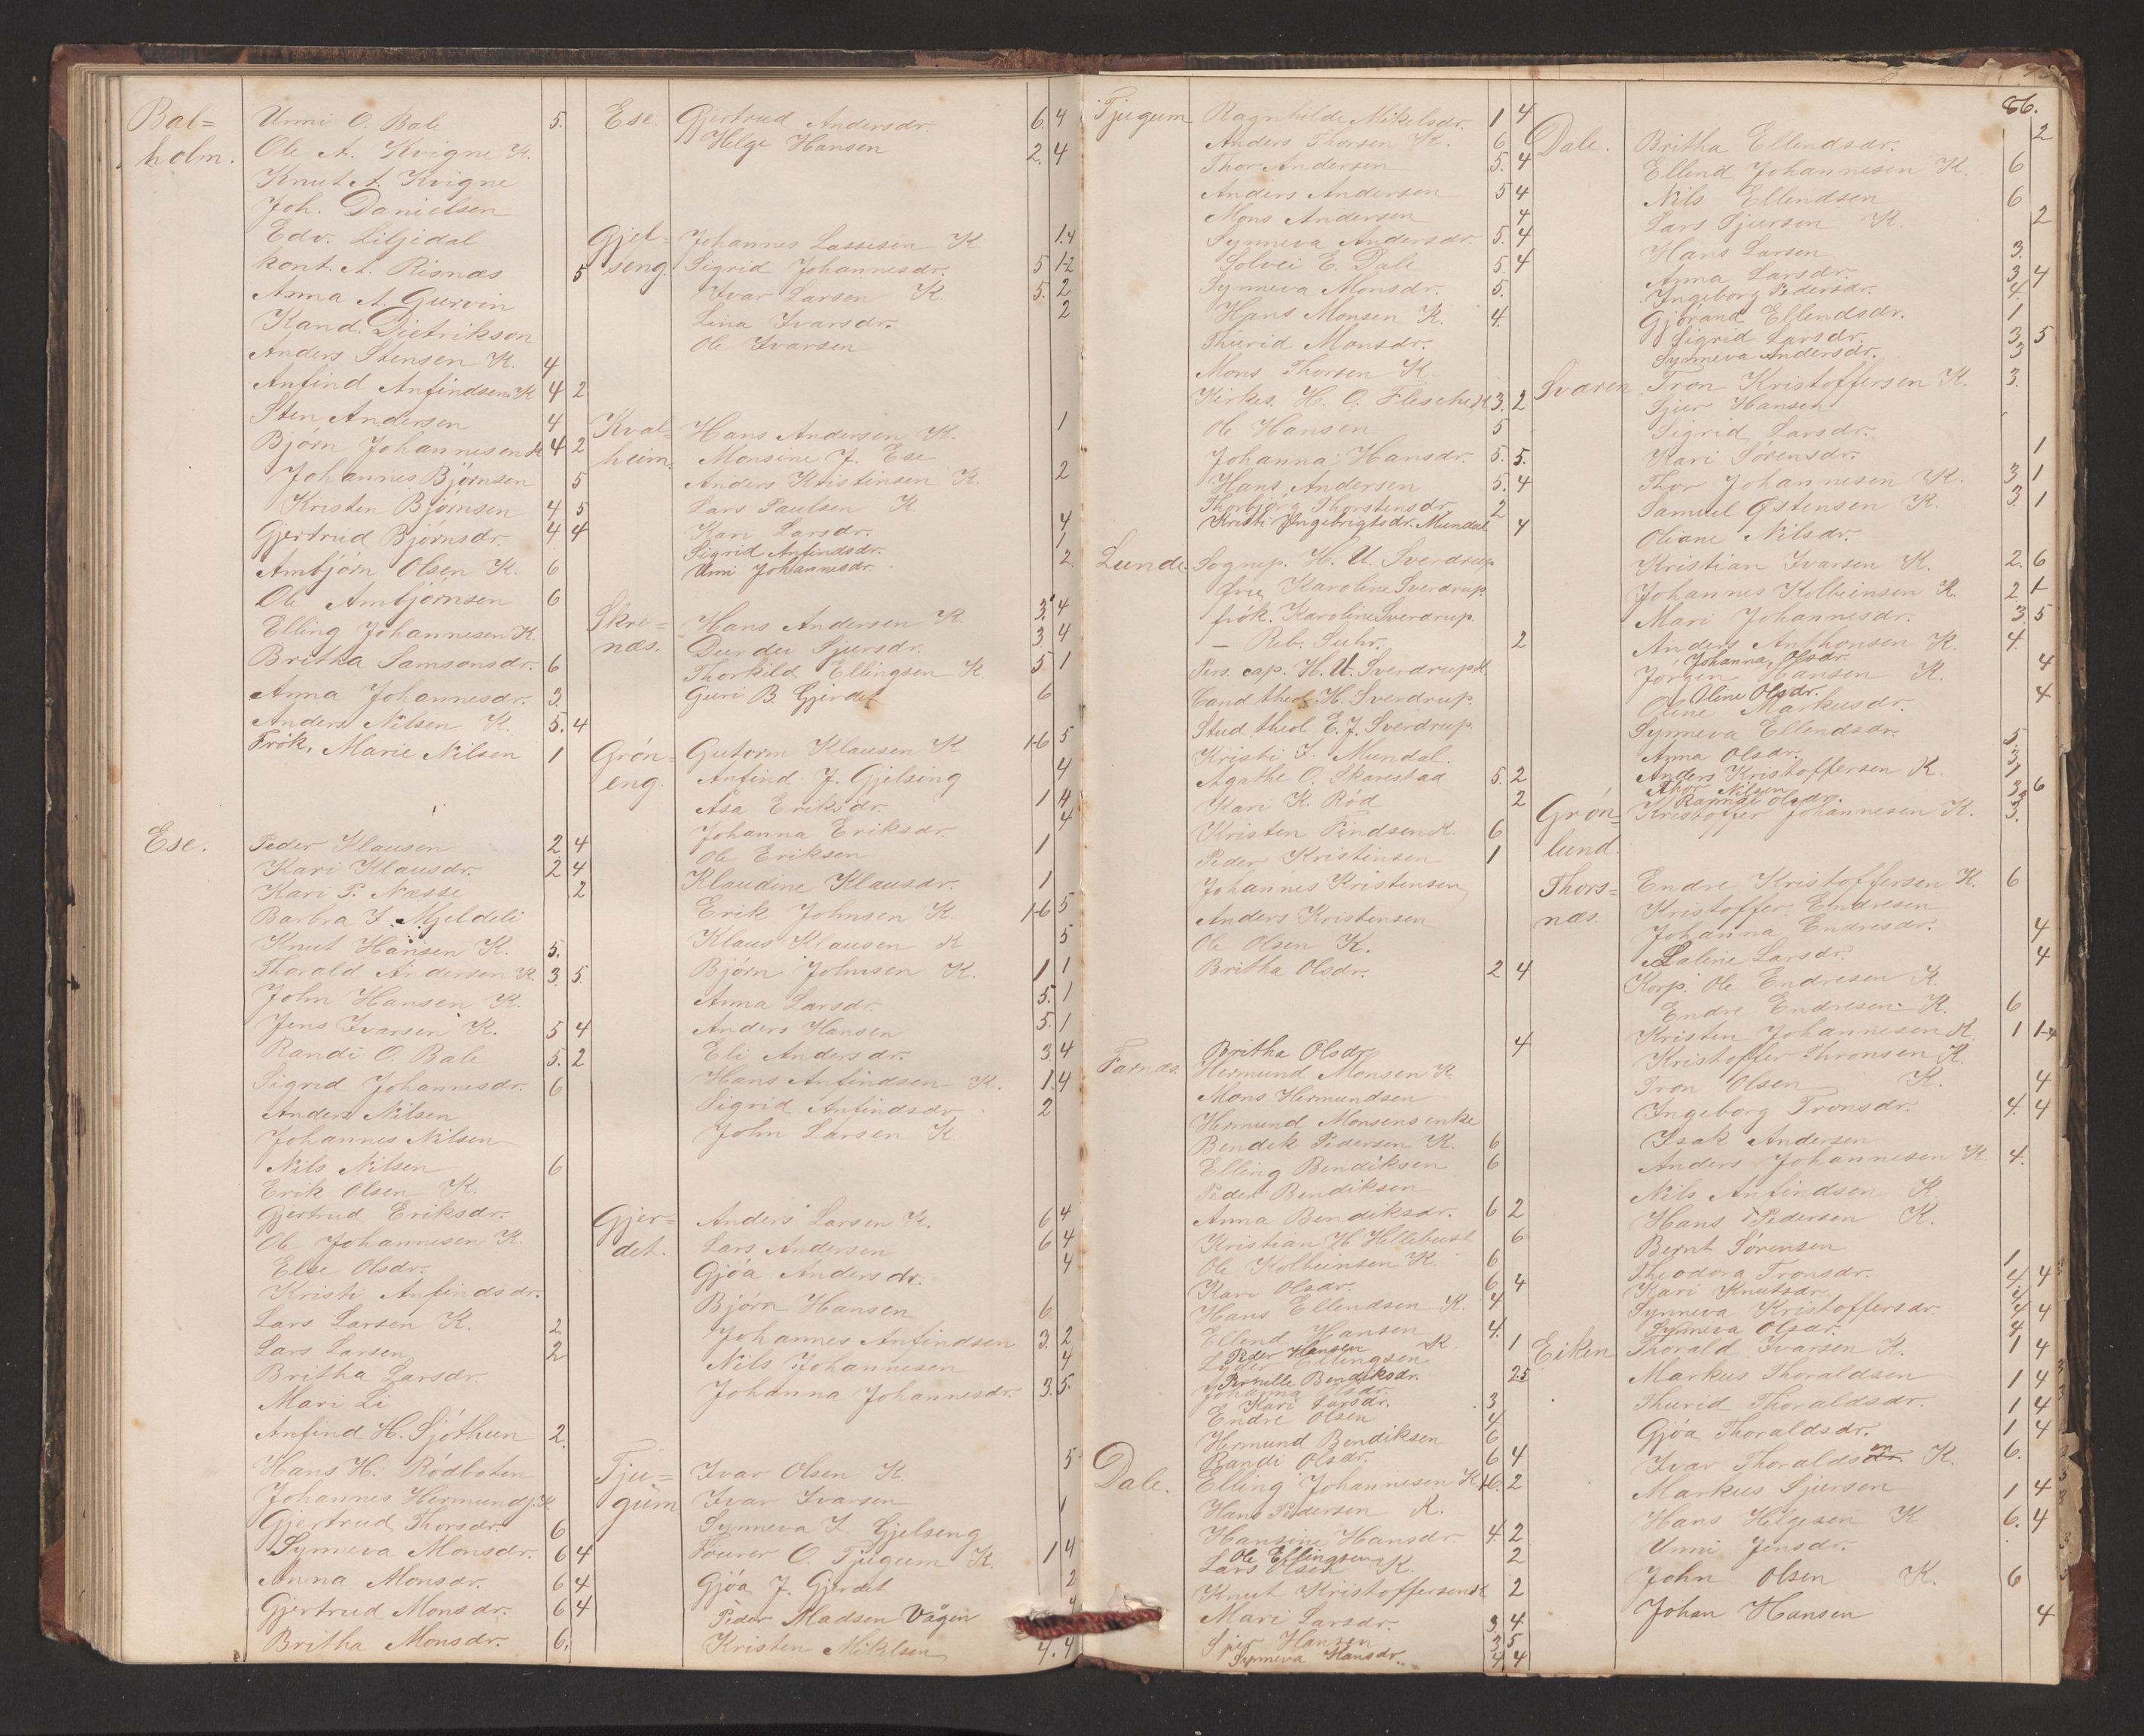 Bal=
holm.
Unni O. Bale 5.
Ole A. Kvigne K.
Knut A. Kvigne
Joh. Danielsen
Edv. Liljedal
kont. A. Risnæs 5
Anna A. Gurvin
Kand. Dietrikson
Anders Stensen K. 4
Anfind Anfindsen K 4 2
Sten Andersen 4
Bjørn Johannesen K 4 2
Johannes Bjørnsen 5
Kristen Bjørnsen 4 5
Gjertrud Bjørnsdr. 4 4
Ambjørn Olsen K. 6
Ole Ambjørnsen 6
Elling Johannesen K.
Britha Samsonsdr. 6
Anna Johannesdr. 3.
Anders Nilsen K. 5. 4
Frøk. Marie Nilsen 1
Ese.
Peder Klausen 2 4
Kari Klausdr. 2 4
Kari P. Næsse 2
Barbra I. Mjeldeli
Knut Hansen K. 5.
Thorald Andersen K. 3. 5.
John Hansen K.
Jens Ivarsen K. 5 4
Randi O. Bale 5. 2
Sigrid Johannesdr. 6
Anders Nilsen
Johannes Nilsen
Nils Nilsen 6
Erik Olsen K.
Gjertrud Eriksdr.
Ole Johannesen K.
Else Olsdr.
Kristi Anfindsdr.
Lars Larsen K. 2
Lars Larsen 2
Britha Larsdr.
Mari Li
Anfind H. Sjøthun 2.
Hans H. Rødboten
Johannes Hermunds. K
Gjertrud Thorsdr. 6
Synneva Monsdr. 6 4
Anna Monsdr. 6 4
Gjertrud Monsdr. 6 4
Britha Monsdr. 6.
Ese.
Gjertrud Andersdr. 6. 4
Helge Hansen 2. 4
Gjel=
seng.
Johannes Lassesen K 1.4
Sigrid Johannesdr. 5 1-2
Ivar Larsen K. 5. 2
Lina Ivarsdr. 2
Ole Ivarsen
Kval=
heim.
Hans Andersen K. 1
Monsine J. Ese
Anders Kristensen K. 2
Lars Paulsen K
Kari Larsdr. 4
Sigrid Anfindsdr. 1
Unni Johannesdr. 2.
Skre=
næs.
Hans Andersen K. 3. 4
Durdei Sjursdr. 3. 4
Thorkild Ellingsen K. 5. 1
Guri B. Gjerdet 6
Grøn=
eng.
Gutorm Klausen K 1-6 5
Anfind J. Gjelseng 4
Åsa Eriksdr. 1 4
Johanna Eriksdr. 4
Ole Eriksen 1
Klaudine Klausdr. 1
Erik Johnsen K. 1-6 5
Klaus Klausen K 5
Bjørn Johnsen K. 1 1
Anna Larsdr. 5. 1
Anders Hansen 5. 1
Eli Andersdr. 3. 4
Hans Anfindsen K. 1. 4
Sigrid Anfindsdr. 2
John Larsen K
Gjer=
det.
Anders Larsen K. 6 4
Lars Andersen 6 4
Gjøa Andersdr. 4
Bjørn Hansen 6
Johannes Anfindsen 3. 2
Nils Johannesen 4
Johanna Johannesdr. 3. 5.
Tju=
gum
Ivar Olsen K. 5
Ivar Ivarsen 1
Synneva I. Gjelseng
Sourer O. Tjugum K. 1 4
Gjøa J. Gjerdet 2
Peder Madsen Vågen
Kristen Miklsen 4. 4
Tjugum
Ragnhilde Mikelsdr. 1 4
Anders Thorsen K. 6
Thor Andersen 5. 4
Anders Andersen 5 4
Mons Andersen 4
Synneva Andersdr. 5. 4
Solvei E. Dale 5. 4
Synneva Monsdr. 5.
Hans Monsen K. 4.
Thurid Monsdr.
Mons Thorsen K.
Kirkes. H. O. Flesche K 3. 2
Ole Hansen 5
Johanna Hansdr. 5. 5.
Hans Andersen 5. 4
Thorbjørg Thorstensdr. 2
Kristi Ingebrigtsdr. Mundal 4
Lunde.
Sognep. H. U. Sverdrup
frue Karoline Sverdrup.
frøk. Karoline Sverdrup
— Reb. Suhr. 2
Pers. cap. H. U. Sverdrup K.
Cand. theol. H. Sverdrup.
Stud. theol E. J. Sverdrup.
Kristi I. Mundal.
Agathe O. Skarestad 5. 2
Kari K. Rød 2
Kristen Findsen K. 6
Peder Kristensen 1
Johannes Kristensen
Anders Kristensen
Ole Olsen K.
Britha Olsdr. 2 4
Britha Olsdr. 4
Farnæs.
Hermund Monsen K.
Mons Hermundsen
Hermund Monsens enke
Bendik Pedersen K. 6
Elling Bendiksen 6
Peder Bendiksen
Anna Bendiksdr. 6 2
Kristian H Hellebust 6
Ole Kolbeinsen K. 6
Kari Olsdr. 6 4
Hans Ellendsen K. 4
Ellend Hansen 4.
Peder Hansen K. 1
Lyder Ellingsen
Pernille Bendiksdr. 2.5
Johanna Olsdr.
Kari Larsdr. 3
Endre Olsen 4.
Hermund Bendiksen 6
Randi Olsdr. 6 4
Dale.
Elling Johannesen K. 1-6. 2
Hans Pedersen K.
Hansine Hansdr. 4. 2
Ole Ellingsen 2
Lars Olsen K.
Knut Kristoffersen K 2
Mari Larsdr. 3. 4
Sjur Hansen 3. 5
Synneva Hansdr. 4. 4
86.
Dale.
Britha Ellendsdr. 2
Ellend Johannesen K. 6
Nils Ellendsen 6
Lars Sjursen K. 2
Hans Larsen 3.
Anna Larsdr. 3. 4
Ingeborg Pedersdr. 4.
Gjørand Ellendsdr. 1
Sigrid Larsdr. 3. 5
Synneva Andersdr. 3
Sværen
Tron Kristoffersen K. 3.
Sjur Hansen
Sigrid Larsdr.
Kari Sørensdr. 1
Thor Johannesen K. 3. 1
Samuel Østensen K. 3. 1
Oliane Nilsdr.
Kristian Ivarsen K. 2. 6
Johannes Kolbeinsen K 2. 1
Mari Johannesdr. 3. 5
Anders Anthonsen K. 4.
Johanna Olsdr.
Jørgen Hansen K. 4
Oline Olsdr.
Oline Markusdr. 4
Synneva Ellendsdr.
Anna Olsdr. 5.
Anders Kristoffersen K. 3.
Thor Nilsen 3. 6
Ragna Olsdr.
Grøn=
lund.
Kristoffer Johannesen K. 3.
Thors=
næs.
Endre Kristoffersen K. 6
Kristoffer Endresen
Johanna Endresdr. 4
Lalene Larsdr. 4
Korp. Ole Endresen K.
Endre Endresen K. 6
Kristen Johannesen K. 1 1-4
Kristoffer Thronsen K.
Tron Olsen K. 4
Ingeborg Tronsdr. 4. 4
Isak Andersen
Anders Johannesen K 4.
Nils Anfindsen K
Hans Pedersen K.
Bernt Sørensen
Theodora Tronsdr. 4. 4
Kari Knutsdr. 4.
Synneva Kristoffersdr. 4 4
Synneva Olsdr. 4
Eiken
Thorald Ivarsen K. 1 4
Markus Thoraldsen 1 4
Thurid Thoraldsdr. 1 4
Gjøa Thoraldsdr. 1 4
Ivar Thoraldsen K. 6.
Markus Sjursen 1 4
Hans Helgesen K 6. 4
Unni Jensdr.
John Olsen K. 6
Johan Hansen 4